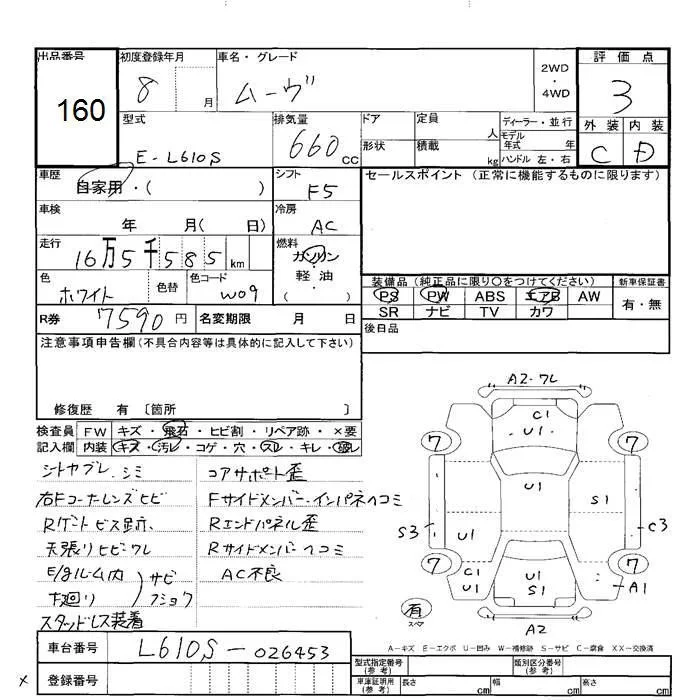 出品番号
160
初度登録年月
8 月
車名・グレード
ムーヴ
2WD
・
4WD
評価点
3
外装 内装
C D
型式
E-L610S
排気量
660 cc
ドア
定員 人
形状
積載 kg
ディーラー・並行
モデル
年式 年
ハンドル 左・右
車歴
自家用・( )
シフト
F5
セールスポイント (正常に機能するものに限ります)
車検
年 月( 日)
冷房
AC
走行
16万5千585 km
燃料
ガソリン
・
軽油
( )
色
ホワイト
色替
色コード
W09
装備品 (純正品に限り○をつけてください)
PS PW ABS エアB AW
SR ナビ TV カワ
新車保証書
有・無
R券 7590 円
名変期限 月 日
後日品
注意事項申告欄(不具合内容等は具体的に記入して下さい)
修復歴 有 〔箇所 〕
検査員 FW キズ・飛石・ヒビ割・リペア跡・×要
記入欄 内装 キズ・汚レ・コゲ・穴・スレ・キレ・破レ
シートヤブレ シミ
右Fコーナーレンズヒビ
Rゲートビス跡
天張りヒビワレ
E/gルーム内
下廻り
サビ
フショク
スタッドレス装着
コアサポート歪
Fサイドメンバー・インパネヘコミ
Rエンドパネル歪
Rサイドメンバーヘコミ
AC不良
A2・ワレ
C1
U1
7
7
U1
S1
S3
U1
C3
7
7
C1
U1
U1
S1
A1
有
スペア
A2
A-キズ E-エクボ U-凹み W-補修跡 S-サビ C-腐食 XX-交換済
車台番号 L610S-026453
× 登録番号
型式指定番号
(参考)
類別区分番号
(参考)
車庫証明用
(参考)
長さ cm
幅 cm
高さ cm